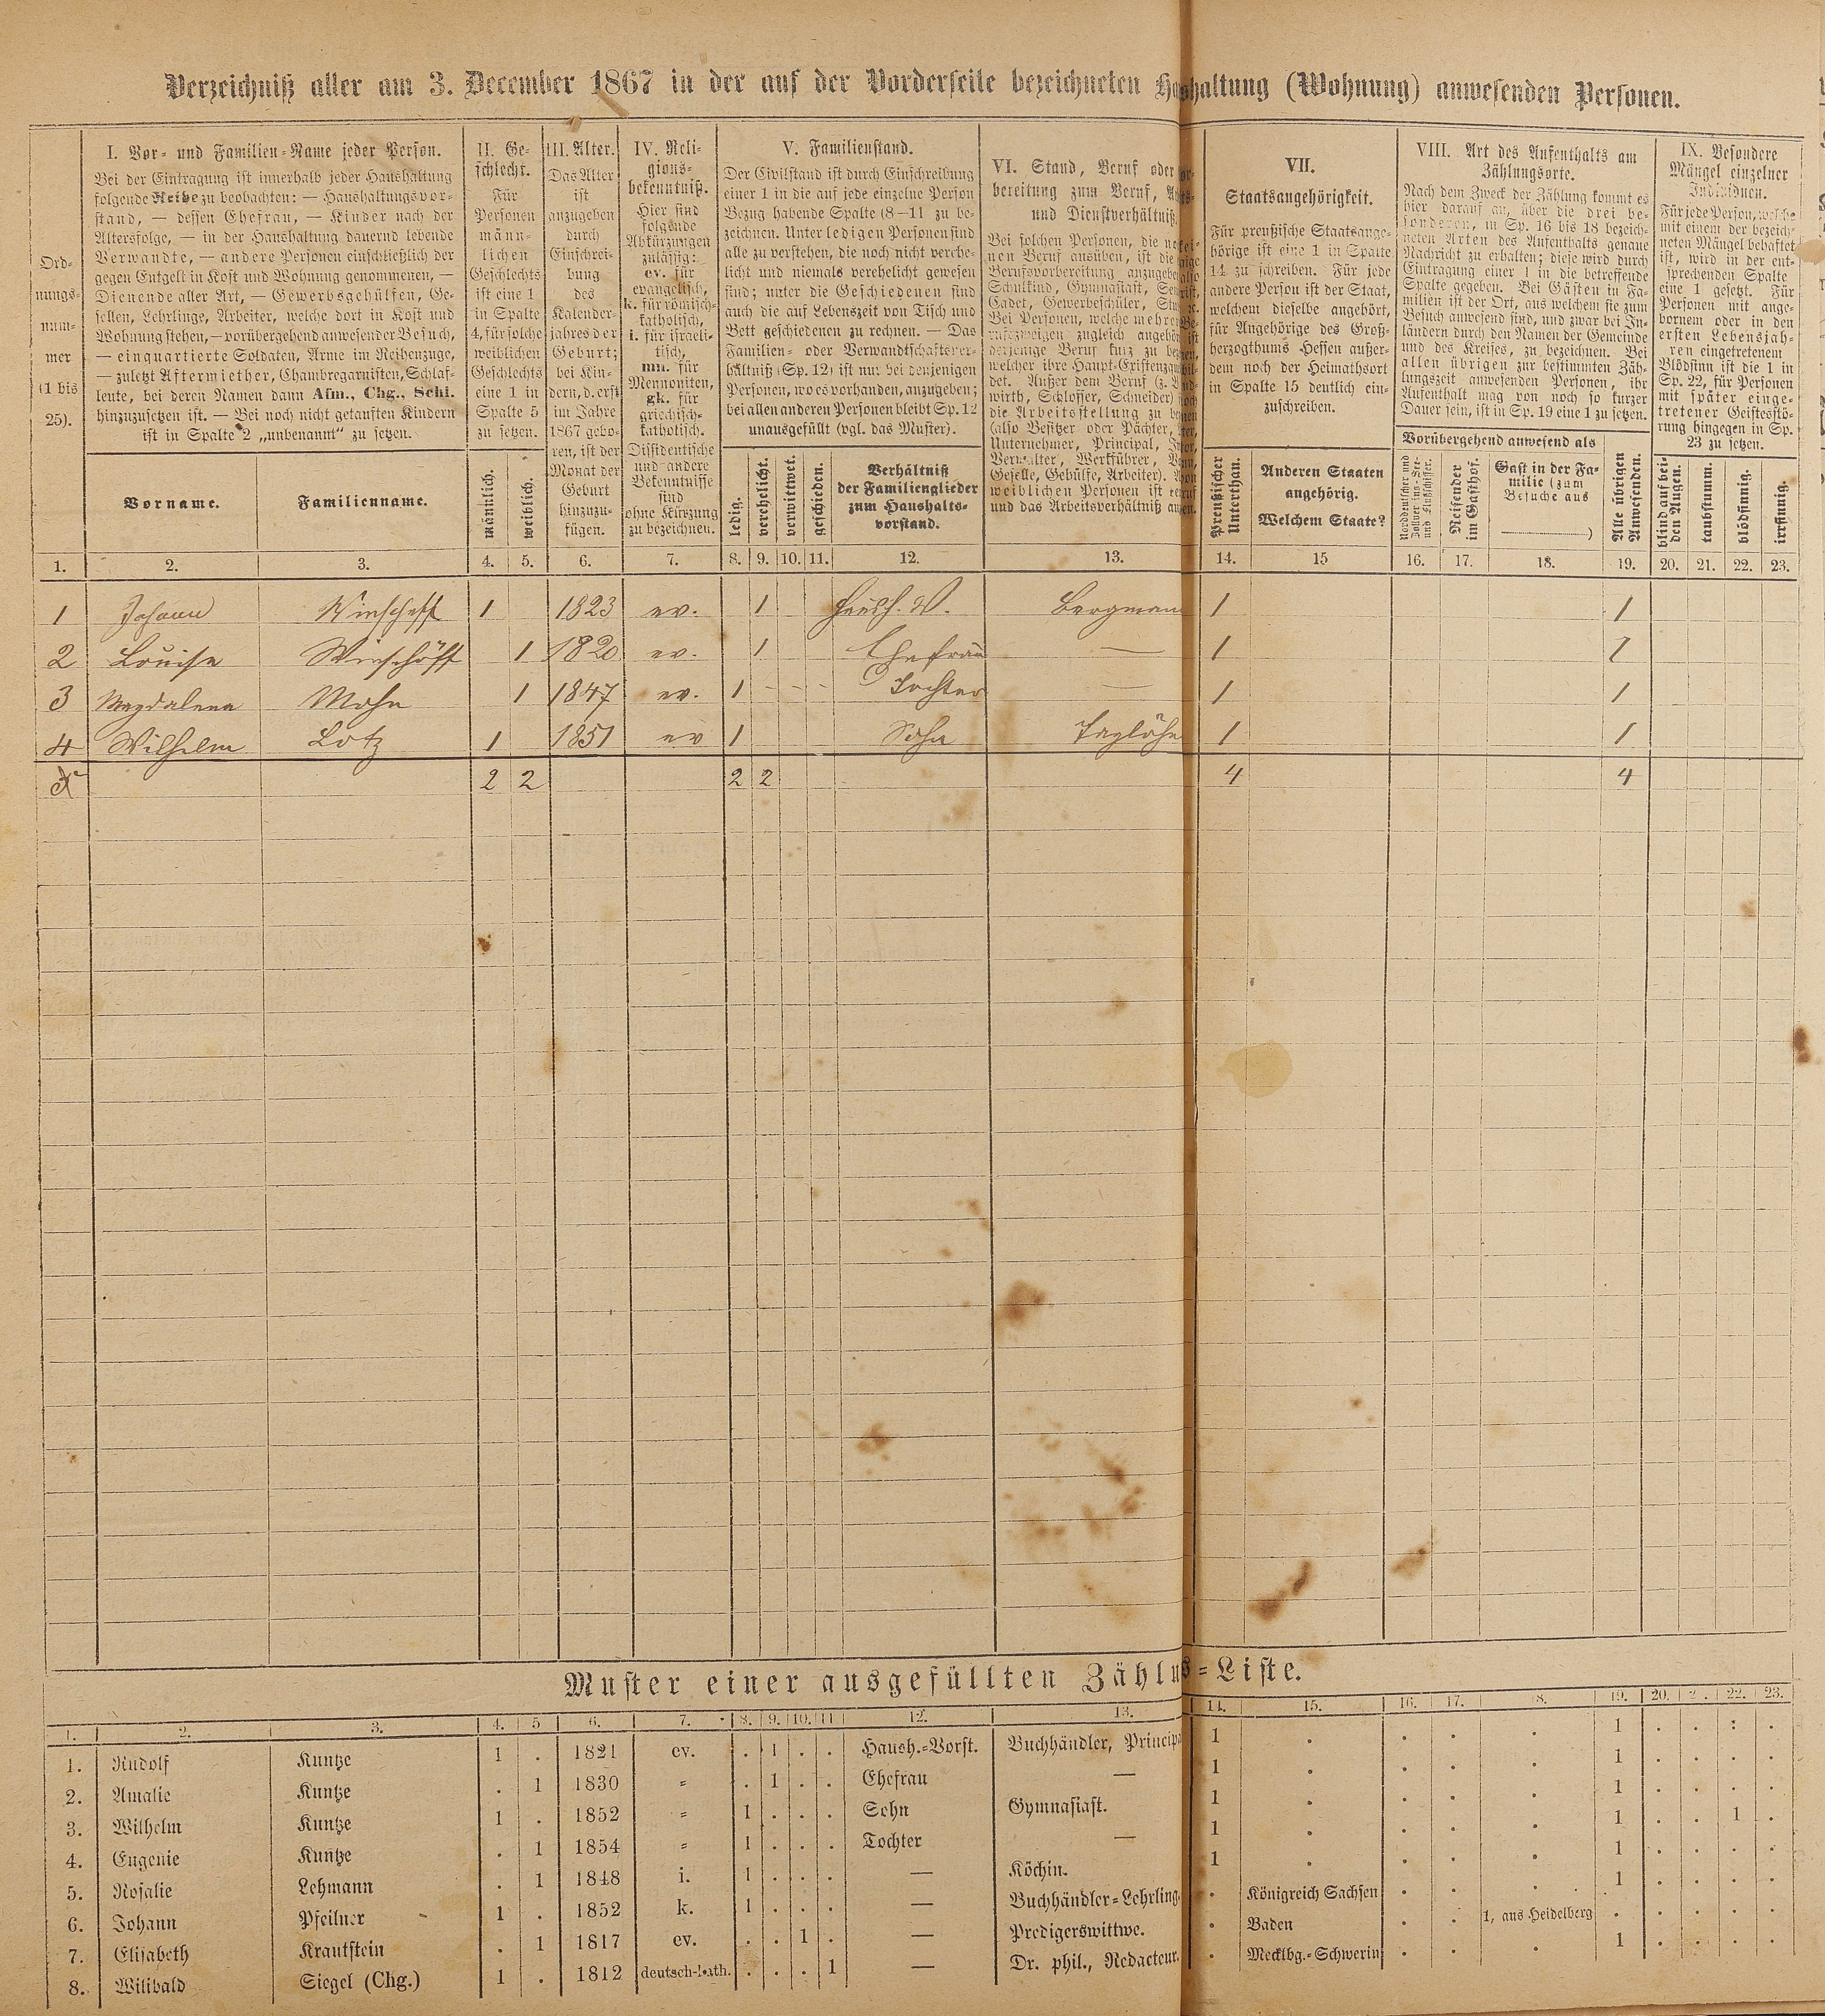 Verzeichniß aller am 3. December 1867 in der auf der Vorderseite bezeichneten Haushaltung (Wohnung) anwesenden Personen.
Ordnungs-
num-
mer
(1 bis
25).
I. Vor- und Familien-Name jeder Person.
Bei der Eintragung ist innerhalb jeder Haushaltung
folgende Reihe zu beobachten: — Haushaltungsvor-
stand, — dessen Ehefrau, — Kinder nach der
Altersfolge, — in der Haushaltung dauernd lebende
Verwandte, — andere Personen einschließlich der
gegen Entgelt in Kost und Wohnung genommenen, —
Dienende aller Art, — Gewerbsgehülfen, Ge-
sellen, Lehrlinge, Arbeiter, welche dort in Kost und
Wohnung stehen, — vorübergehend anwesender Besuch,
— einquartierte Soldaten, Arme im Reihenzuge,
— zuletzt Aftermiether, Chambregarnisten, Schlaf-
leute, bei deren Namen dann Afm., Chg., Schl.
hinzuzusetzen ist. — Bei noch nicht getauften Kindern
ist in Spalte 2 „unbenannt“ zu setzen.
Vorname.
Familienname.
II. Ge-
schlecht.
Für
Personen
männ-
lichen
Geschlechts
ist eine 1
in Spalte
4, für solche
weiblichen
Geschlechts
eine 1 in
Spalte 5
zu setzen.
männlich.
weiblich.
III. Alter.
Das Alter
ist
anzugeben
durch
Einschrei-
bung
des
Kalender-
jahres der
Geburt;
bei Kin-
dern, d. erst
im Jahre
1867 gebo-
ren, ist der
Monat der
Geburt
hinzuzu-
fügen.
IV. Reli-
gions-
bekenntniß.
Hier sind
folgende
Abkürzungen
zulässig:
ev. für
evangelisch,
k. für römisch-
katholisch,
i. für israeli-
tisch,
mn. für
Mennoniten,
gk. für
griechisch-
katholisch.
Dissidentische
und andere
Bekenntnisse
sind
ohne Kürzung
zu bezeichnen.
V. Familienstand.
Der Civilstand ist durch Einschreibung
einer 1 in die auf jede einzelne Person
Bezug habende Spalte (8—11 zu be-
zeichnen. Unter ledigen Personen sind
alle zu verstehen, die noch nicht verehe-
licht und niemals verehelicht gewesen
sind; unter die Geschiedenen sind
auch die auf Lebenszeit von Tisch und
Bett geschiedenen zu rechnen. — Das
Familien- oder Verwandtschaftsver-
hältniß (Sp. 12) ist nur bei denjenigen
Personen, wo es vorhanden, anzugeben;
bei allen anderen Personen bleibt Sp. 12
unausgefüllt (vgl. das Muster).
ledig.
verehelicht.
verwittwet.
geschieden.
Verhältniß
der Familienglieder
zum Haushalts-
vorstand.
VI. Stand, Beruf oder
bereitung zum Beruf,
und Dienstverhältniß
Bei solchen Personen, die
nen Beruf ausüben, ist die
Berufsvorbereitung
Schulkind, Gymnasiast,
Cadet, Gewerbeschüler,
Bei Personen, welche
rufszweigen zugleich
derjenige Beruf kurz zu
welcher ihre Haupt-
det. Außer dem Beruf (z.
wirth, Schlosser, Schneider)
die Arbeitsstellung zu
(also Besitzer oder Pächter,
Unternehmer, Principal,
Verwalter, Werkführer,
Geselle, Gehülfe, Arbeiter).
weiblichen Personen ist
und das Arbeitsverhältniß
VII.
Staatsangehörigkeit.
Für preußische Staatsange-
hörige ist eine 1 in Spalte
14 zu schreiben. Für jede
andere Person ist der Staat,
welchem dieselbe angehört,
für Angehörige des Groß-
herzogthums Hessen außer-
dem noch der Heimathsort
in Spalte 15 deutlich ein-
zuschreiben.
Preußischer
Unterthan.
Anderen Staaten
angehörig.
Welchem Staate?
VIII. Art des Aufenthalts am
Zählungsorte.
Nach dem Zweck der Zählung kommt es
hier darauf an, über die drei be-
sonderen, in Sp. 16 bis 18 bezeich-
neten Arten des Aufenthalts genaue
Nachricht zu erhalten; diese wird durch
Eintragung einer 1 in die betreffende
Spalte gegeben. Bei Gästen in Fa-
milien ist der Ort, aus welchem sie zum
Besuch anwesend sind, und zwar bei In-
ländern durch den Namen der Gemeinde
und des Kreises, zu bezeichnen. Bei
allen übrigen zur bestimmten Zäh-
lungszeit anwesenden Personen, ihr
Aufenthalt mag von noch so kurzer
Dauer sein, ist in Sp. 19 eine 1 zu setzen.
Vorübergehend anwesend als
Reisender
im Gasthof.
Gast in der Fa-
milie (zum
Besuche aus
)
Alle übrigen
Anwesenden.
IX. Besondere
Mängel einzelner
Individuen.
Für jede Person, welche
mit einem der bezeich-
neten Mängel behaftet
ist, wird in der ent-
sprechenden Spalte
eine 1 gesetzt. Für
Personen mit ange-
bornem oder in den
ersten Lebensjah-
ren eingetretenem
Blödsinn ist die 1 in
Sp. 22, für Personen
mit später einge-
tretener Geistesstö-
rung hingegen in Sp.
23 zu setzen.
blind auf bei-
den Augen.
taubstumm.
blödsinnig.
irrsinnig.
1. 2. 3. 4. 5. 6. 7. 8. 9. 10. 11. 12. 13. 14. 15 16. 17. 18. 19. 20. 21. 22. 23.
1 Johann 1 1823 ev. 1 Haush. V. Bergmann 1 1
2 Louise Wirschöff 1 1820 ev. 1 Ehefrau — 1 1
3 Magdalena Mohn 1 1847 ev. 1 - - - Tochter — 1 1
4 Wilhelm Lotz 1 1851 ev 1 Sohn Taglöhn 1 1
2 2 2 2 4 4
Muster einer ausgefüllten Zählungs-Liste.
1. 2. 3. 4. 5 6. 7. 8. 9. 10. 11 12. 13. 14. 15. 16. 17. 18. 19. 20. 21. 22. 23.
1. Rudolf Kuntze 1 . 1821 ev. . 1 . . Haush.-Vorst. Buchhändler, Principal 1 . . . . 1 . . . .
2. Amalie Kuntze . 1 1830 " . 1 . . Ehefrau — 1 . . . . 1 . . . .
3. Wilhelm Kuntze 1 . 1852 " 1 . . . Sohn Gymnasiast. 1 . . . . 1 . . . .
4. Eugenie Kuntze . 1 1854 " 1 . . . Tochter — 1 . . . . 1 . . 1 .
5. Rosalie Lehmann . 1 1848 i. 1 . . . — Köchin. 1 . . . . 1 . . . .
6. Johann Pfeilner 1 . 1852 k. 1 . . . — Buchhändler-Lehrling. . Königreich Sachsen . . . 1 . . . .
7. Elisabeth Krautstein . 1 1817 ev. . . 1 . — Predigerswittwe. . Baden . . 1, aus Heidelberg . . . . .
8. Wilibald Siegel (Chg.) 1 . 1812 deutsch-kath. . . . 1 — Dr. phil., Redacteur. . Mecklbg.-Schwerin . . . 1 . . . .